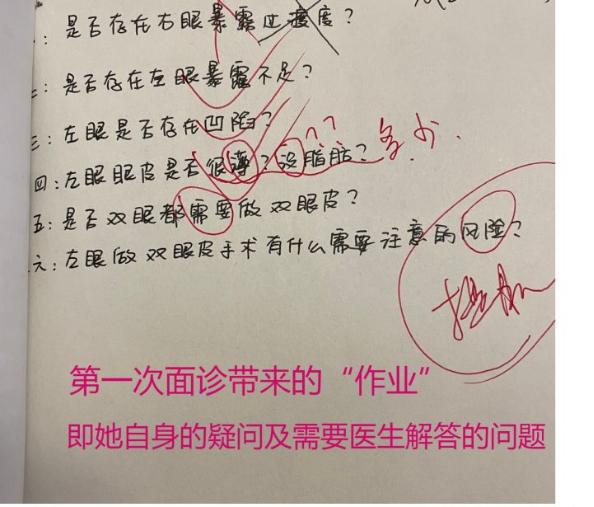 一：是否存在右眼暴露过度？
二：是否存在左眼暴露不足？
三：左眼是否存在凹陷？
四：左眼眼皮是否很薄？没脂肪？ 多少.
??
五：是否双眼都需要做双眼皮？
六：左眼做双眼皮手术有什么需要注意的风险？
提肌
第一次面诊带来的“作业”
即她自身的疑问及需要医生解答的问题